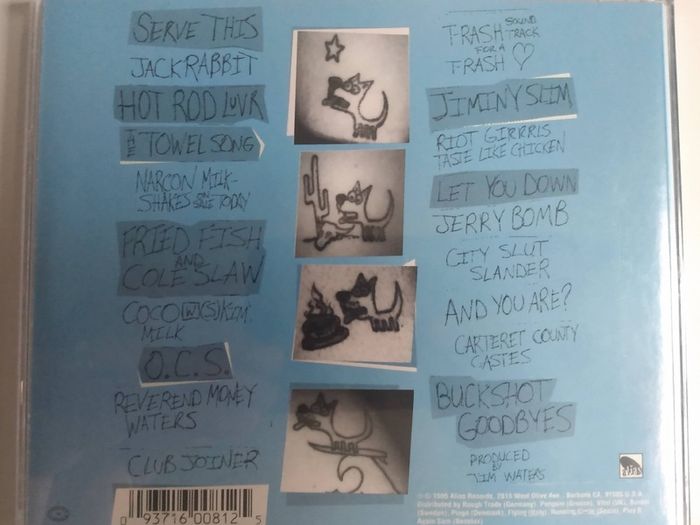 SERVE THIS
JACKRABBIT
HOT ROD LUVR
THE TOWEL SONG
NARCON MILK-
SHAKES ON SALE TODAY
FRIED FISH
AND
COLE SLAW
COCO (W)(S)KIM
MILK
O.C.S.
REVEREND MONEY
WATERS
CLUB JOINER
TRASH SOUND TRACK
FOR A
TRASH ♡
JIMINY SLIM
RIOT GIRRRLS
TASTE LIKE CHICKEN
LET YOU DOWN
JERRY BOMB
CITY SLUT
SLANDER
AND YOU ARE?
CARTERET COUNTY
CASTES
BUCKSHOT
GOODBYES
PRODUCED
BY
TIM WATERS
alias
0 93716 00812 5
Alias Records, 2815 West Olive Ave Burbank CA, 91505 U.S.A.
Distributed by Rough Trade (Germany) Penguin (Greece)